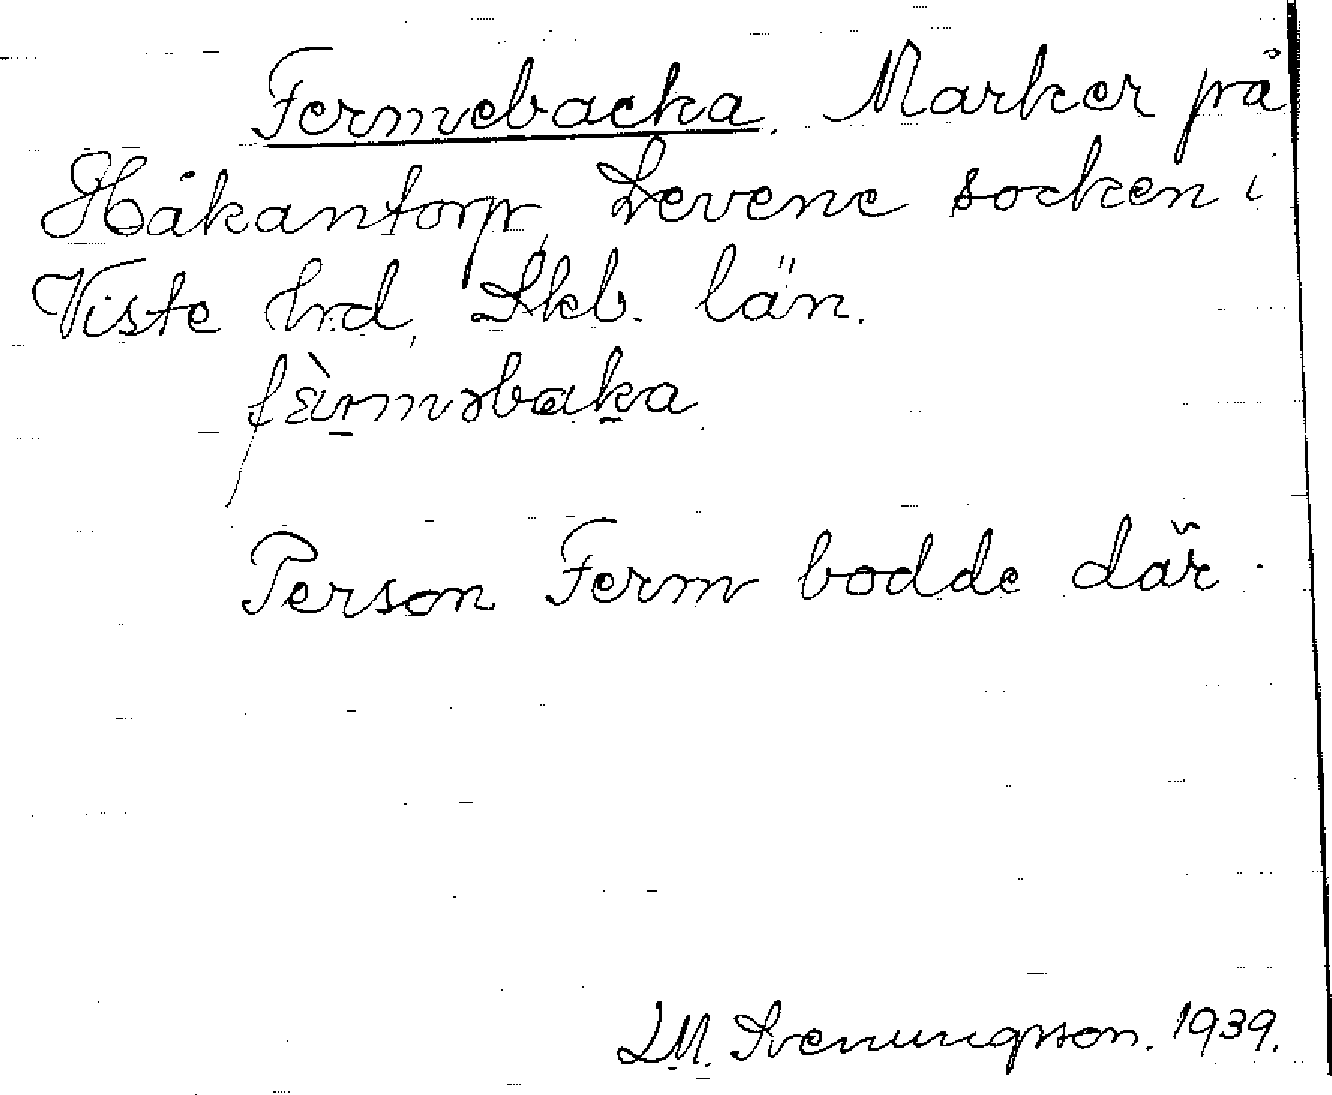 Fermebacka. Marker på
Håkantorp, Levene socken i
Viste hrd, Skb. län.
fèrməbaka
Person Ferm bodde där.
LM. Svenungsson. 1939.